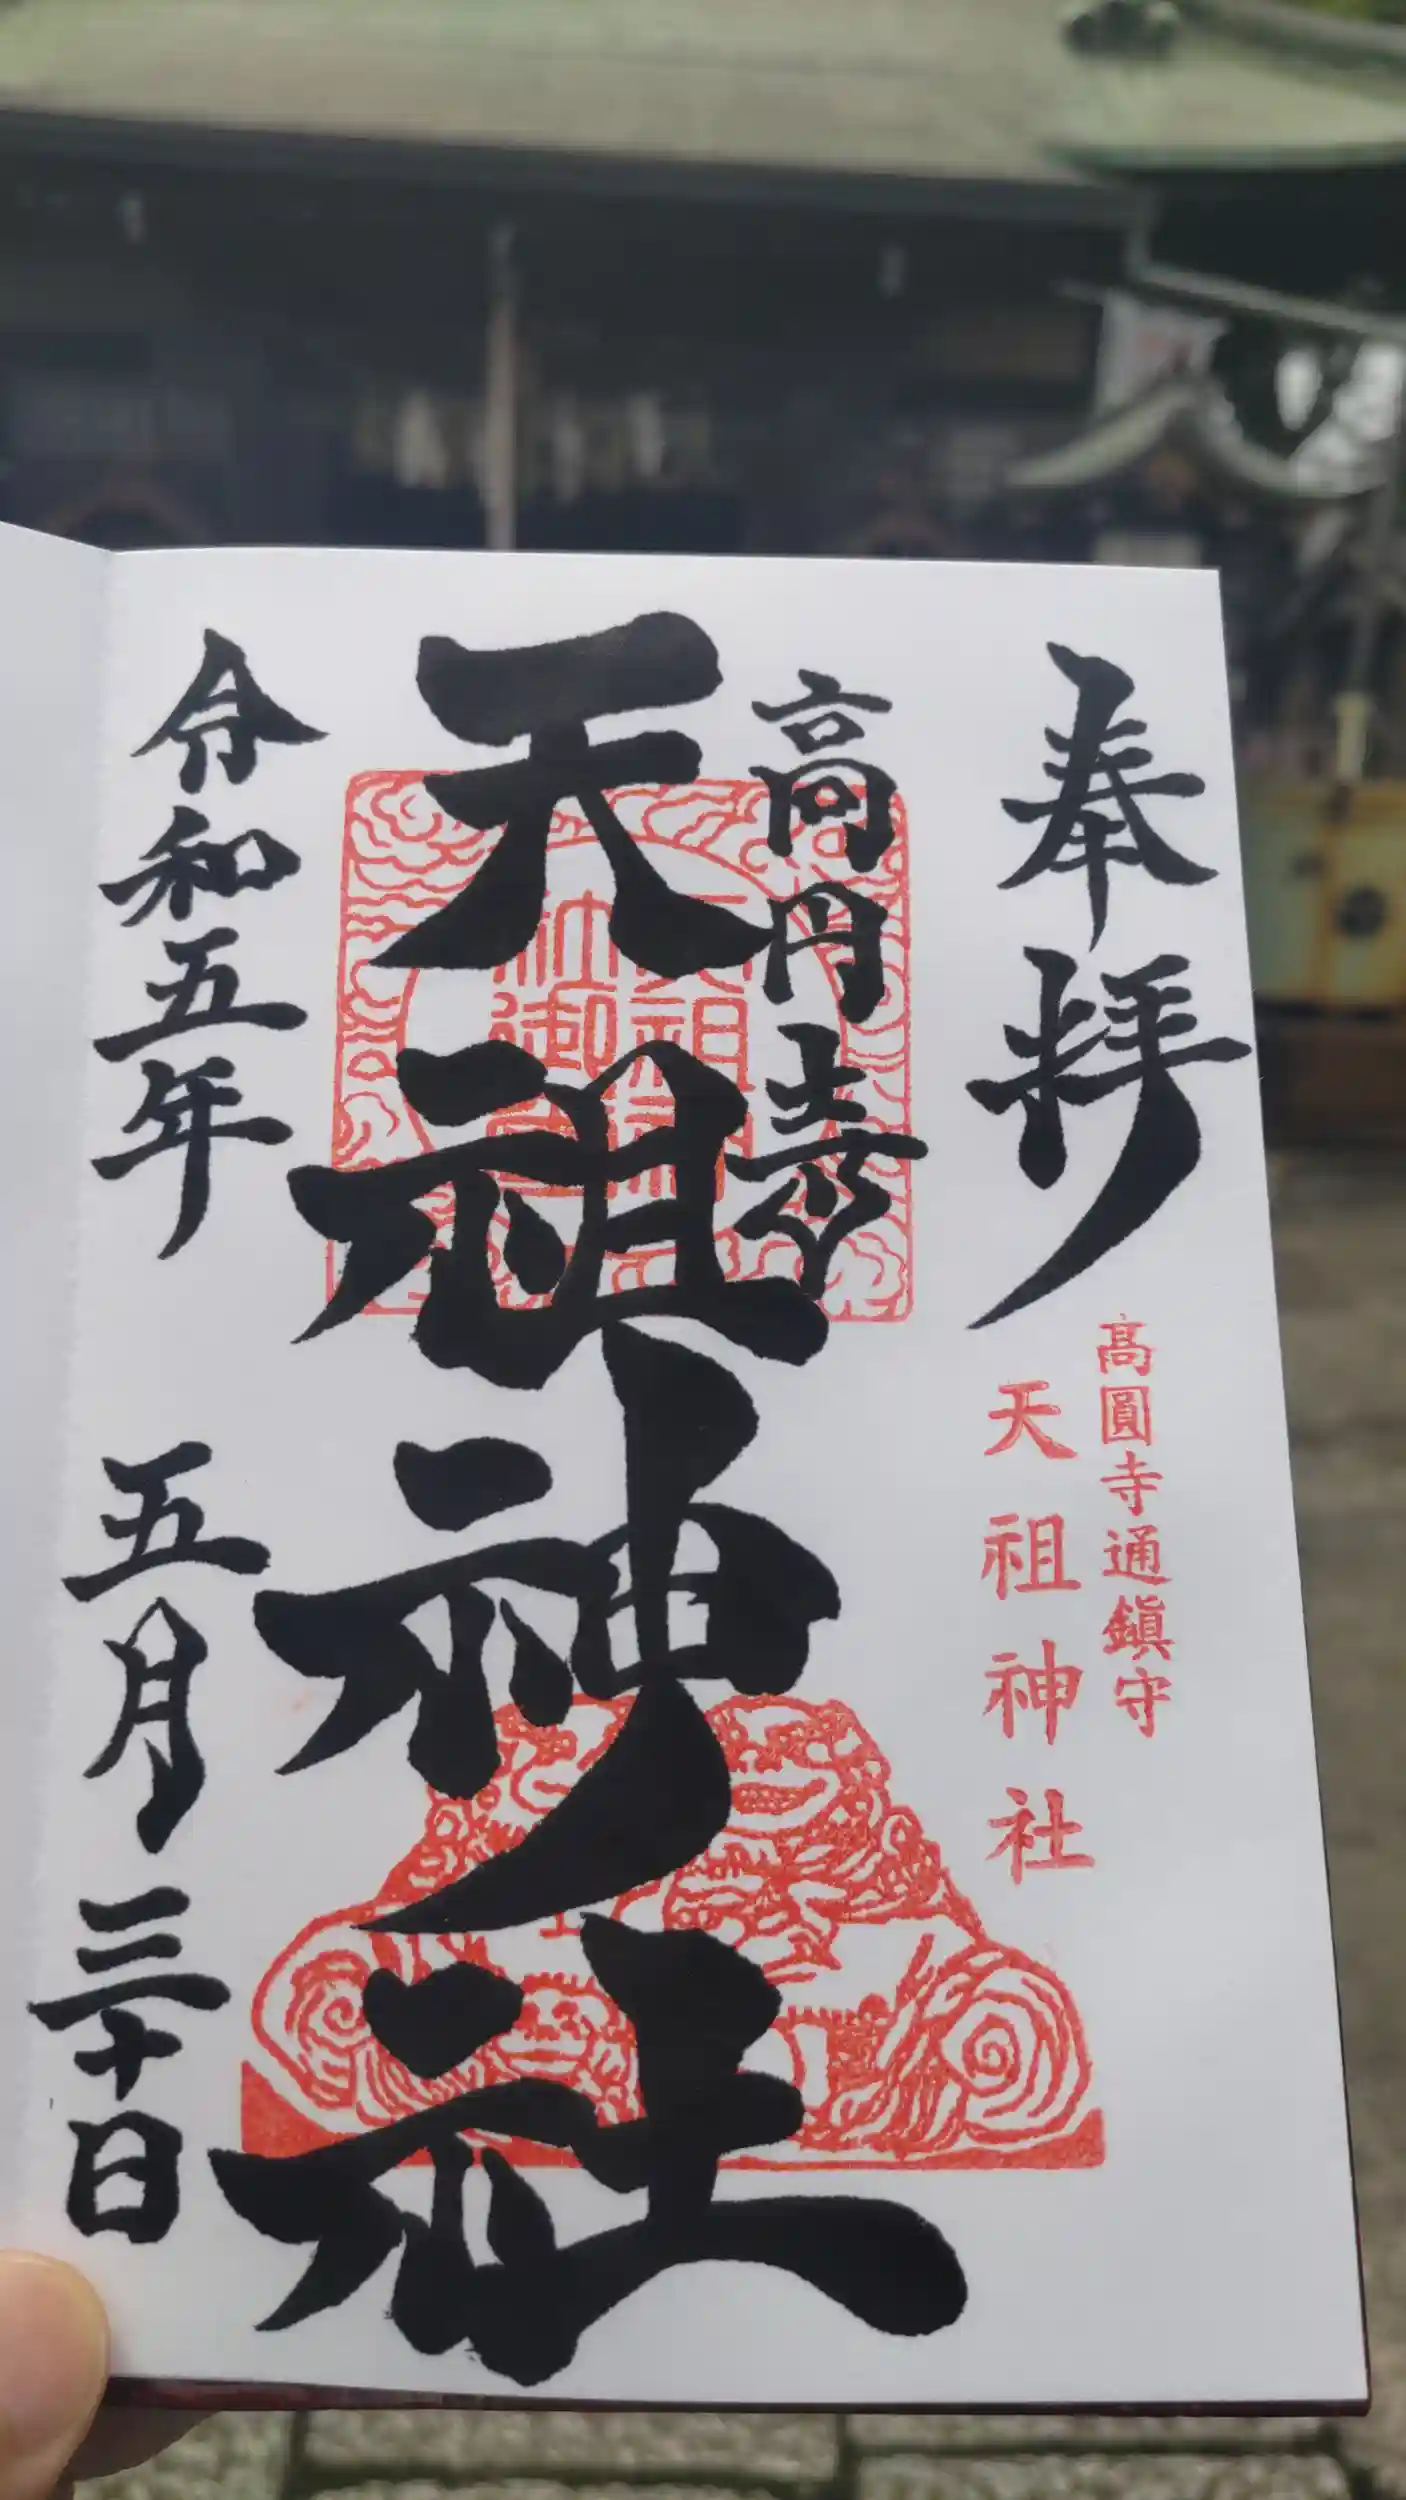 奉拝
高圓寺通鎮守
天祖神社
高円寺
天祖神社
令和五年
五月
三十日